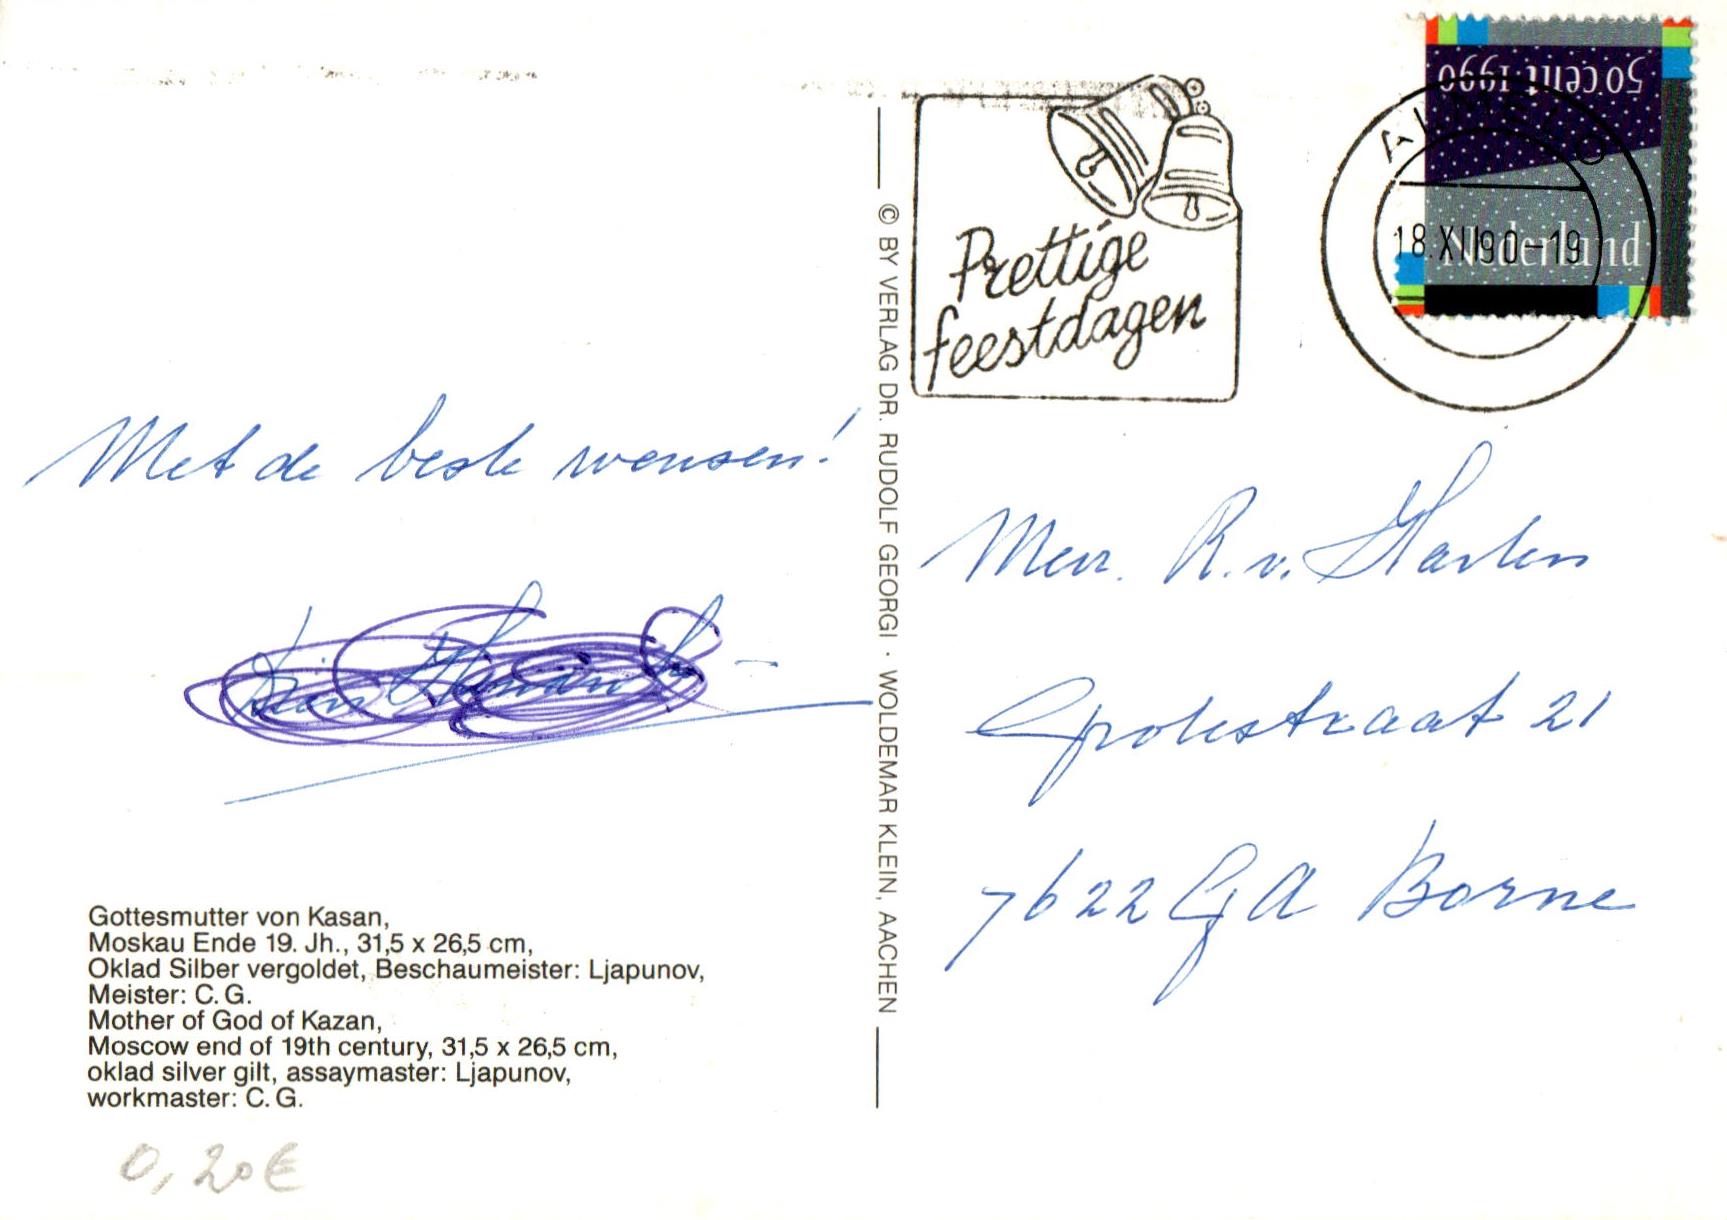 50 cent 1990
Nederland
ALMELO
18.XII90-19
Prettige
feestdagen
Met de beste wensen!
© BY VERLAG DR. RUDOLF GEORGI · WOLDEMAR KLEIN, AACHEN
Mevr. R. v. Harten
21
7622 GA Borne
Gottesmutter von Kasan,
Moskau Ende 19. Jh., 31,5 x 26,5 cm,
Oklad Silber vergoldet, Beschaumeister: Ljapunov,
Meister: C. G.
Mother of God of Kazan,
Moscow end of 19th century, 31,5 x 26,5 cm,
oklad silver gilt, assaymaster: Ljapunov,
workmaster: C. G.
0,20€